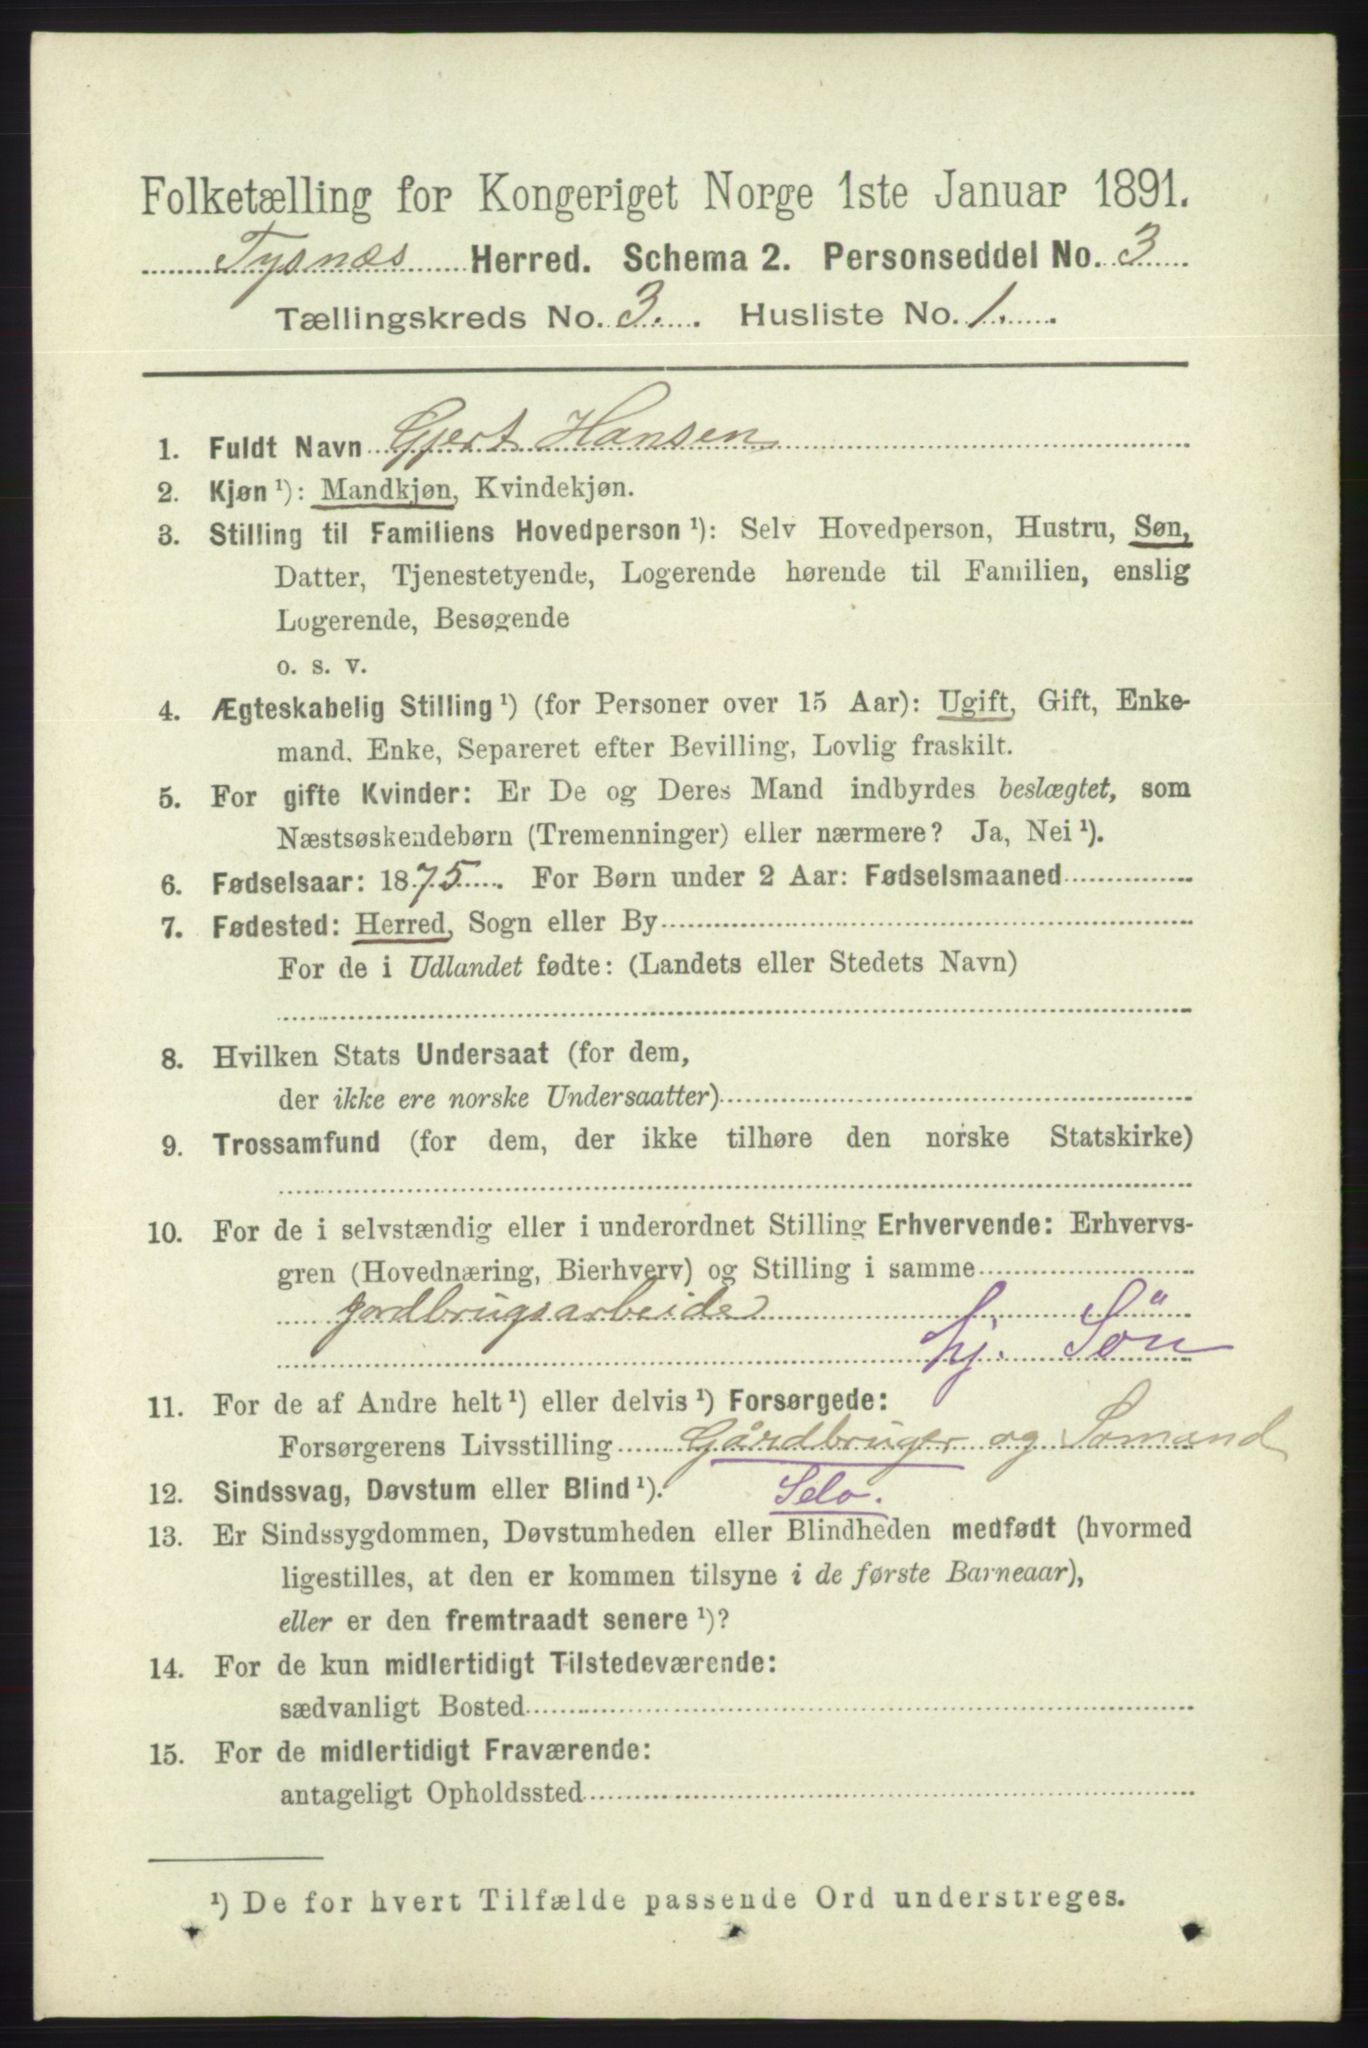 Folketælling for Kongeriget Norge 1ste Januar 1891.
Tysnæs Herred. Schema 2. Personseddel No. 3
Tællingskreds No. 3. Husliste No. 1.
1. Fuldt Navn Gjert Hansen
2. Kjøn ¹): Mandkjøn, Kvindekjøn.
3. Stilling til Familiens Hovedperson ¹): Selv Hovedperson, Hustru, Søn,
Datter, Tjenestetyende, Logerende hørende til Familien, enslig
Logerende, Besøgende
o. s. v.
4. Ægteskabelig Stilling ¹) (for Personer over 15 Aar): Ugift, Gift, Enke-
mand, Enke, Separeret efter Bevilling, Lovlig fraskilt.
5. For gifte Kvinder: Er De og Deres Mand indbyrdes beslægtet, som
Næstsøskendebørn (Tremenninger) eller nærmere? Ja, Nei ¹).
6. Fødselsaar: 1875. For Børn under 2 Aar: Fødselsmaaned
7. Fødested: Herred, Sogn eller By
For de i Udlandet fødte: (Landets eller Stedets Navn)
8. Hvilken Stats Undersaat (for dem,
der ikke ere norske Undersaatter)
9. Trossamfund (for dem, der ikke tilhøre den norske Statskirke)
10. For de i selvstændig eller i underordnet Stilling Erhvervende: Erhvervs-
gren (Hovednæring, Bierhverv) og Stilling i samme
jordbrugsarbeide
hj. Sön
11. For de af Andre helt ¹) eller delvis ¹) Forsørgede:
Forsørgerens Livsstilling Gårdbruger og Sømand
12. Sindssvag, Døvstum eller Blind ¹). Selv.
13. Er Sindssygdommen, Døvstumheden eller Blindheden medfødt (hvormed
ligestilles, at den er kommen tilsyne i de første Barneaar),
eller er den fremtraadt senere ¹)?
14. For de kun midlertidigt Tilstedeværende:
sædvanligt Bosted
15. For de midlertidigt Fraværende:
antageligt Opholdssted
¹) De for hvert Tilfælde passende Ord understreges.